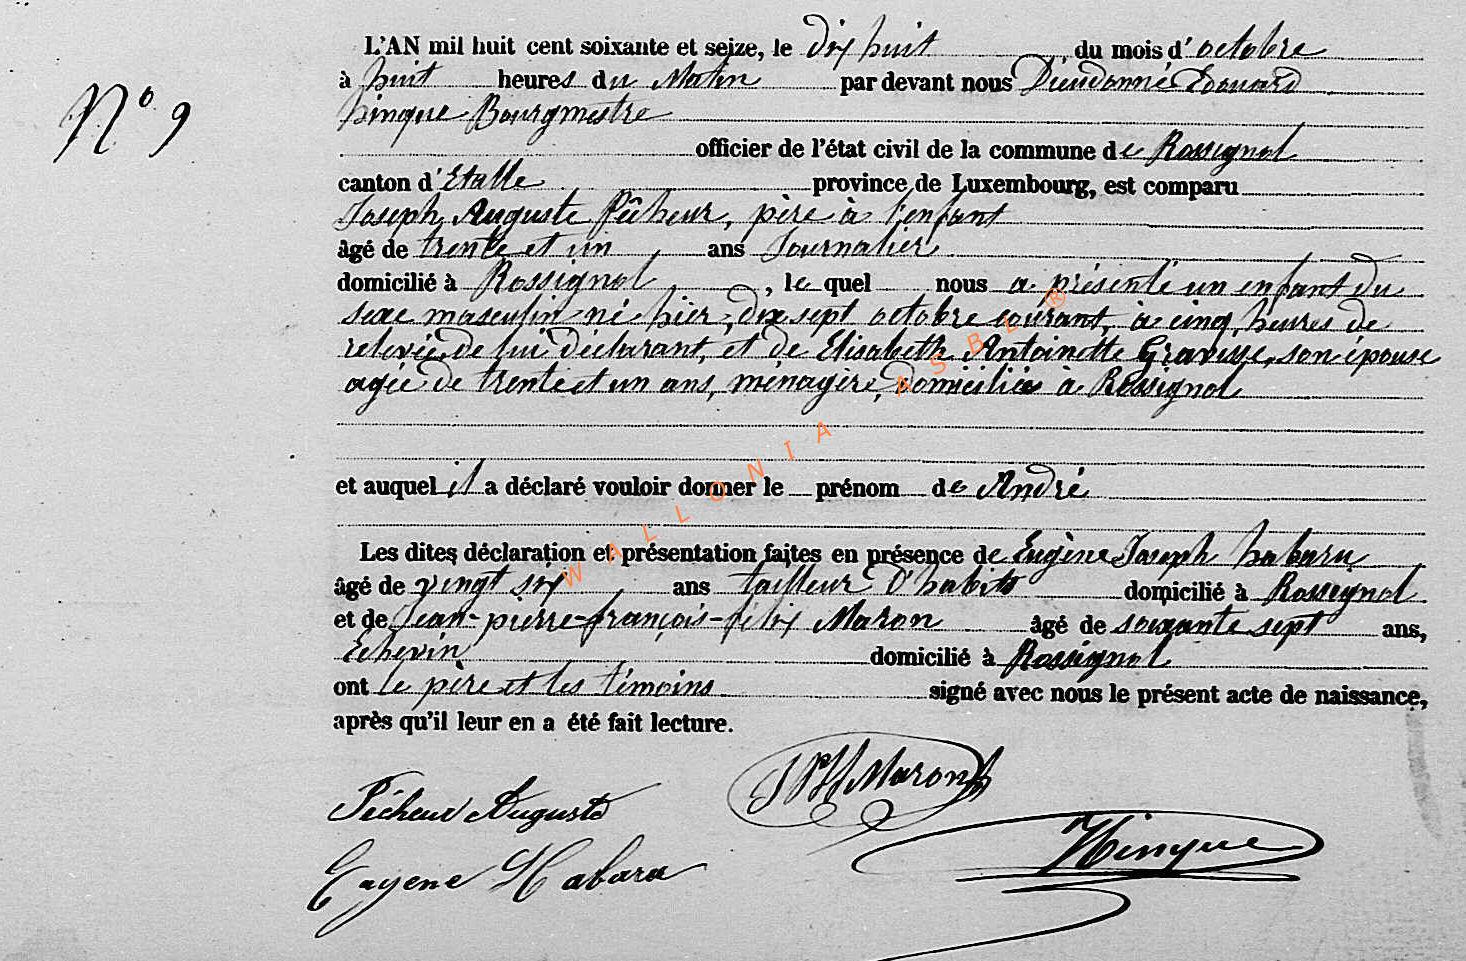 N° 9
L'AN mil huit cent soixante et seize, le dix huit du mois d'octobre
à huit heures du Matin par devant nous Dieudonné Edouard
hinque Bourgmestre
officier de l'état civil de la commune de Rossignol
canton d'Etalle province de Luxembourg, est comparu
Joseph Auguste Pêcheur, père à l'enfant
âgé de trente et un ans Journalier
domicilié à Rossignol, le quel nous a présenté un enfant du
sexe masculin né hier, dix sept octobre courant, à cinq heures de
relevée de lui déclarant, et de Elisabeth Antoinette Gravisse, son épouse
agée de trente et un ans, ménagère, domiciliée à Rossignol
et auquel il a déclaré vouloir donner le prénom de André
Les dites déclaration et présentation faites en présence de Eugène Joseph habaru
âgé de vingt six ans tailleur d'habits domicilié à Rossignol
et de Jean-pierre-françois-félix Maron âgé de soixante sept ans,
Echevin domicilié à Rossignol
ont le père et les témoins signé avec nous le présent acte de naissance,
après qu'il leur en a été fait lecture.
Pécheur Auguste Maron
Hinque
Eugene Habaru
WALLONIA ASBL ®